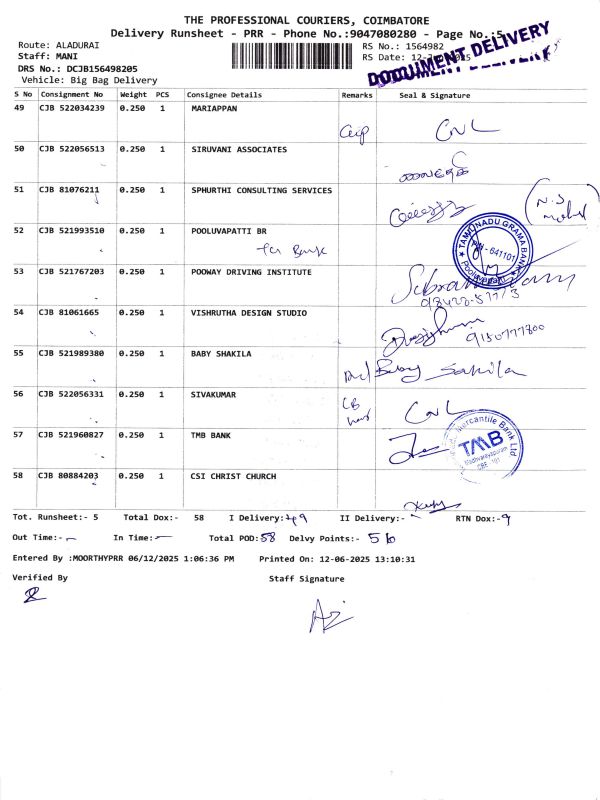 THE PROFESSIONAL COURIERS, COIMBATORE
Delivery Runsheet - PRR - Phone No.:9047080280 - Page No.:5
Route: ALADURAI
RS No.: 1564982
Staff: MANI
RS Date: 12-
DOCUMENT DELIVERY
DRS No.: DCJB156498205
Vehicle: Big Bag Delivery
S No Consignment No Weight PCS Consignee Details Remarks Seal & Signature
49 CJB 522034239 0.250 1 MARIAPPAN
CNL
50 CJB 522056513 0.250 1 SIRUVANI ASSOCIATES
51 CJB 81076211 0.250 1 SPHURTHI CONSULTING SERVICES
N.S
52 CJB 521993510 0.250 1 POOLUVAPATTI BR
Bank
TAMILNADU GRAMA BANK
641101
53 CJB 521767203 0.250 1 POOWAY DRIVING INSTITUTE
54 CJB 81061665 0.250 1 VISHRUTHA DESIGN STUDIO
9150777800
55 CJB 521989380 0.250 1 BABY SHAKILA
Baby Sakila
56 CJB 522056331 0.250 1 SIVAKUMAR
CNL
57 CJB 521960827 0.250 1 TMB BANK
Mercantile Bank Ltd
TMB
58 CJB 80884203 0.250 1 CSI CHRIST CHURCH
Tot. Runsheet:- 5 Total Dox:- 58 I Delivery:- 49 II Delivery:- - RTN Dox:- 9
Out Time:- - In Time:- - Total POD: 58 Delvy Points:- 56
Entered By :MOORTHYPRR 06/12/2025 1:06:36 PM Printed On: 12-06-2025 13:10:31
Verified By Staff Signature